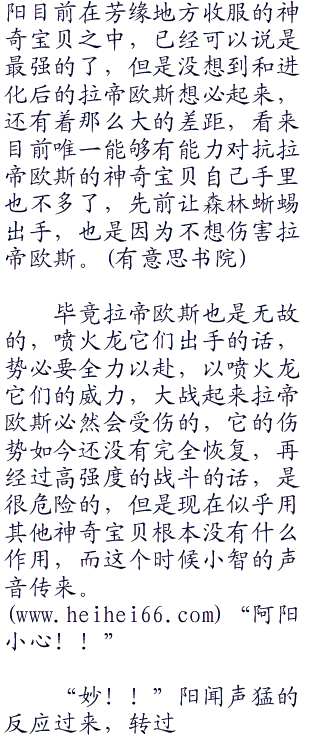 阳目前在芳缘地方收服的神
奇宝贝之中，已经可以说是
最强的了，但是没想到和进
化后的拉帝欧斯想必起来，
还有着那么大的差距，看来
目前唯一能够有能力对抗拉
帝欧斯的神奇宝贝自己手里
也不多了，先前让森林蜥蜴
出手，也是因为不想伤害拉
帝欧斯。(有意思书院)
毕竟拉帝欧斯也是无故
的，喷火龙它们出手的话，
势必要全力以赴，以喷火龙
它们的威力，大战起来拉帝
欧斯必然会受伤的，它的伤
势如今还没有完全恢复，再
经过高强度的战斗的话，是
很危险的，但是现在似乎用
其他神奇宝贝根本没有什么
作用，而这个时候小智的声
音传来。
(www.heihei66.com)“阿阳
小心！！”
“妙！！”阳闻声猛的
反应过来，转过